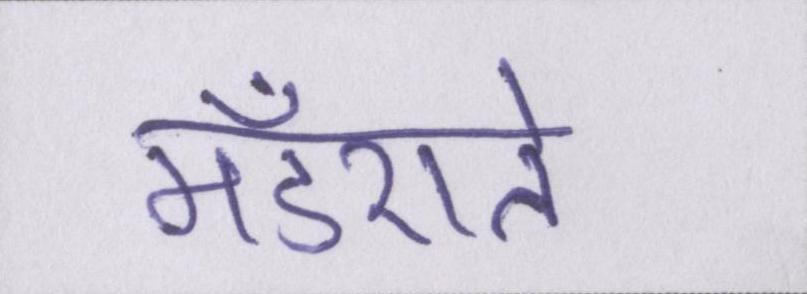 मँडराते